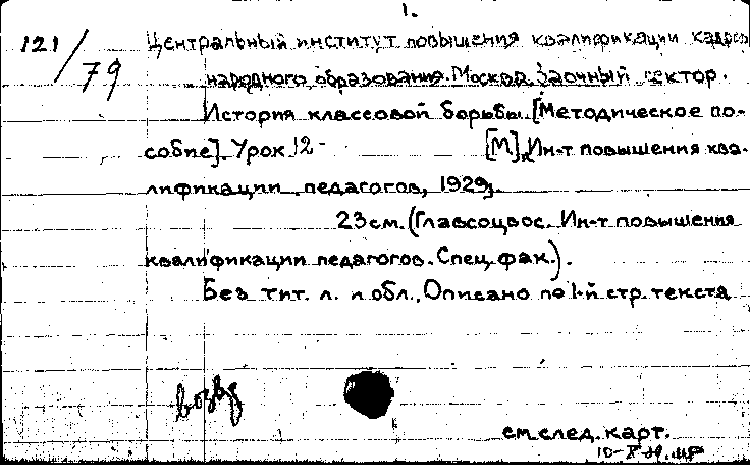 1.
121/79
Центральный институт повышения квалификации кадров
народного образования. Москва. Заочный сектор.
История классовой борьбы. [Методическое по-
собие]. Урок 12-
[М.], Ин-т повышения ква-
лификации педагогов, 1929.
23 см. (Главсоцвос. Ин-т повышения
квалификации педагогов. Спец. фак.).
Без тит. л. и обл., Описано по 1-й стр. текста
см. след. карт.